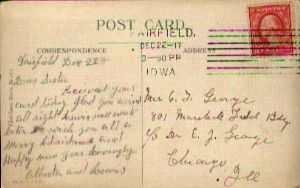 POST CARD
FAIRFIELD,
DEC 22-17
3-30 PM
IOWA
CORRESPONDENCE
ADDRESS
Fairfield Dec 22nd
Dear Sister
Received your
card today Glad you arrived
all right
wish you all a
Merry Christmas and
Happy new year Lovingly
Alberta and
Mrs C. F. George
801 Marshall Field Bldg
c/o Dr E. J. George
Chicago
Ill